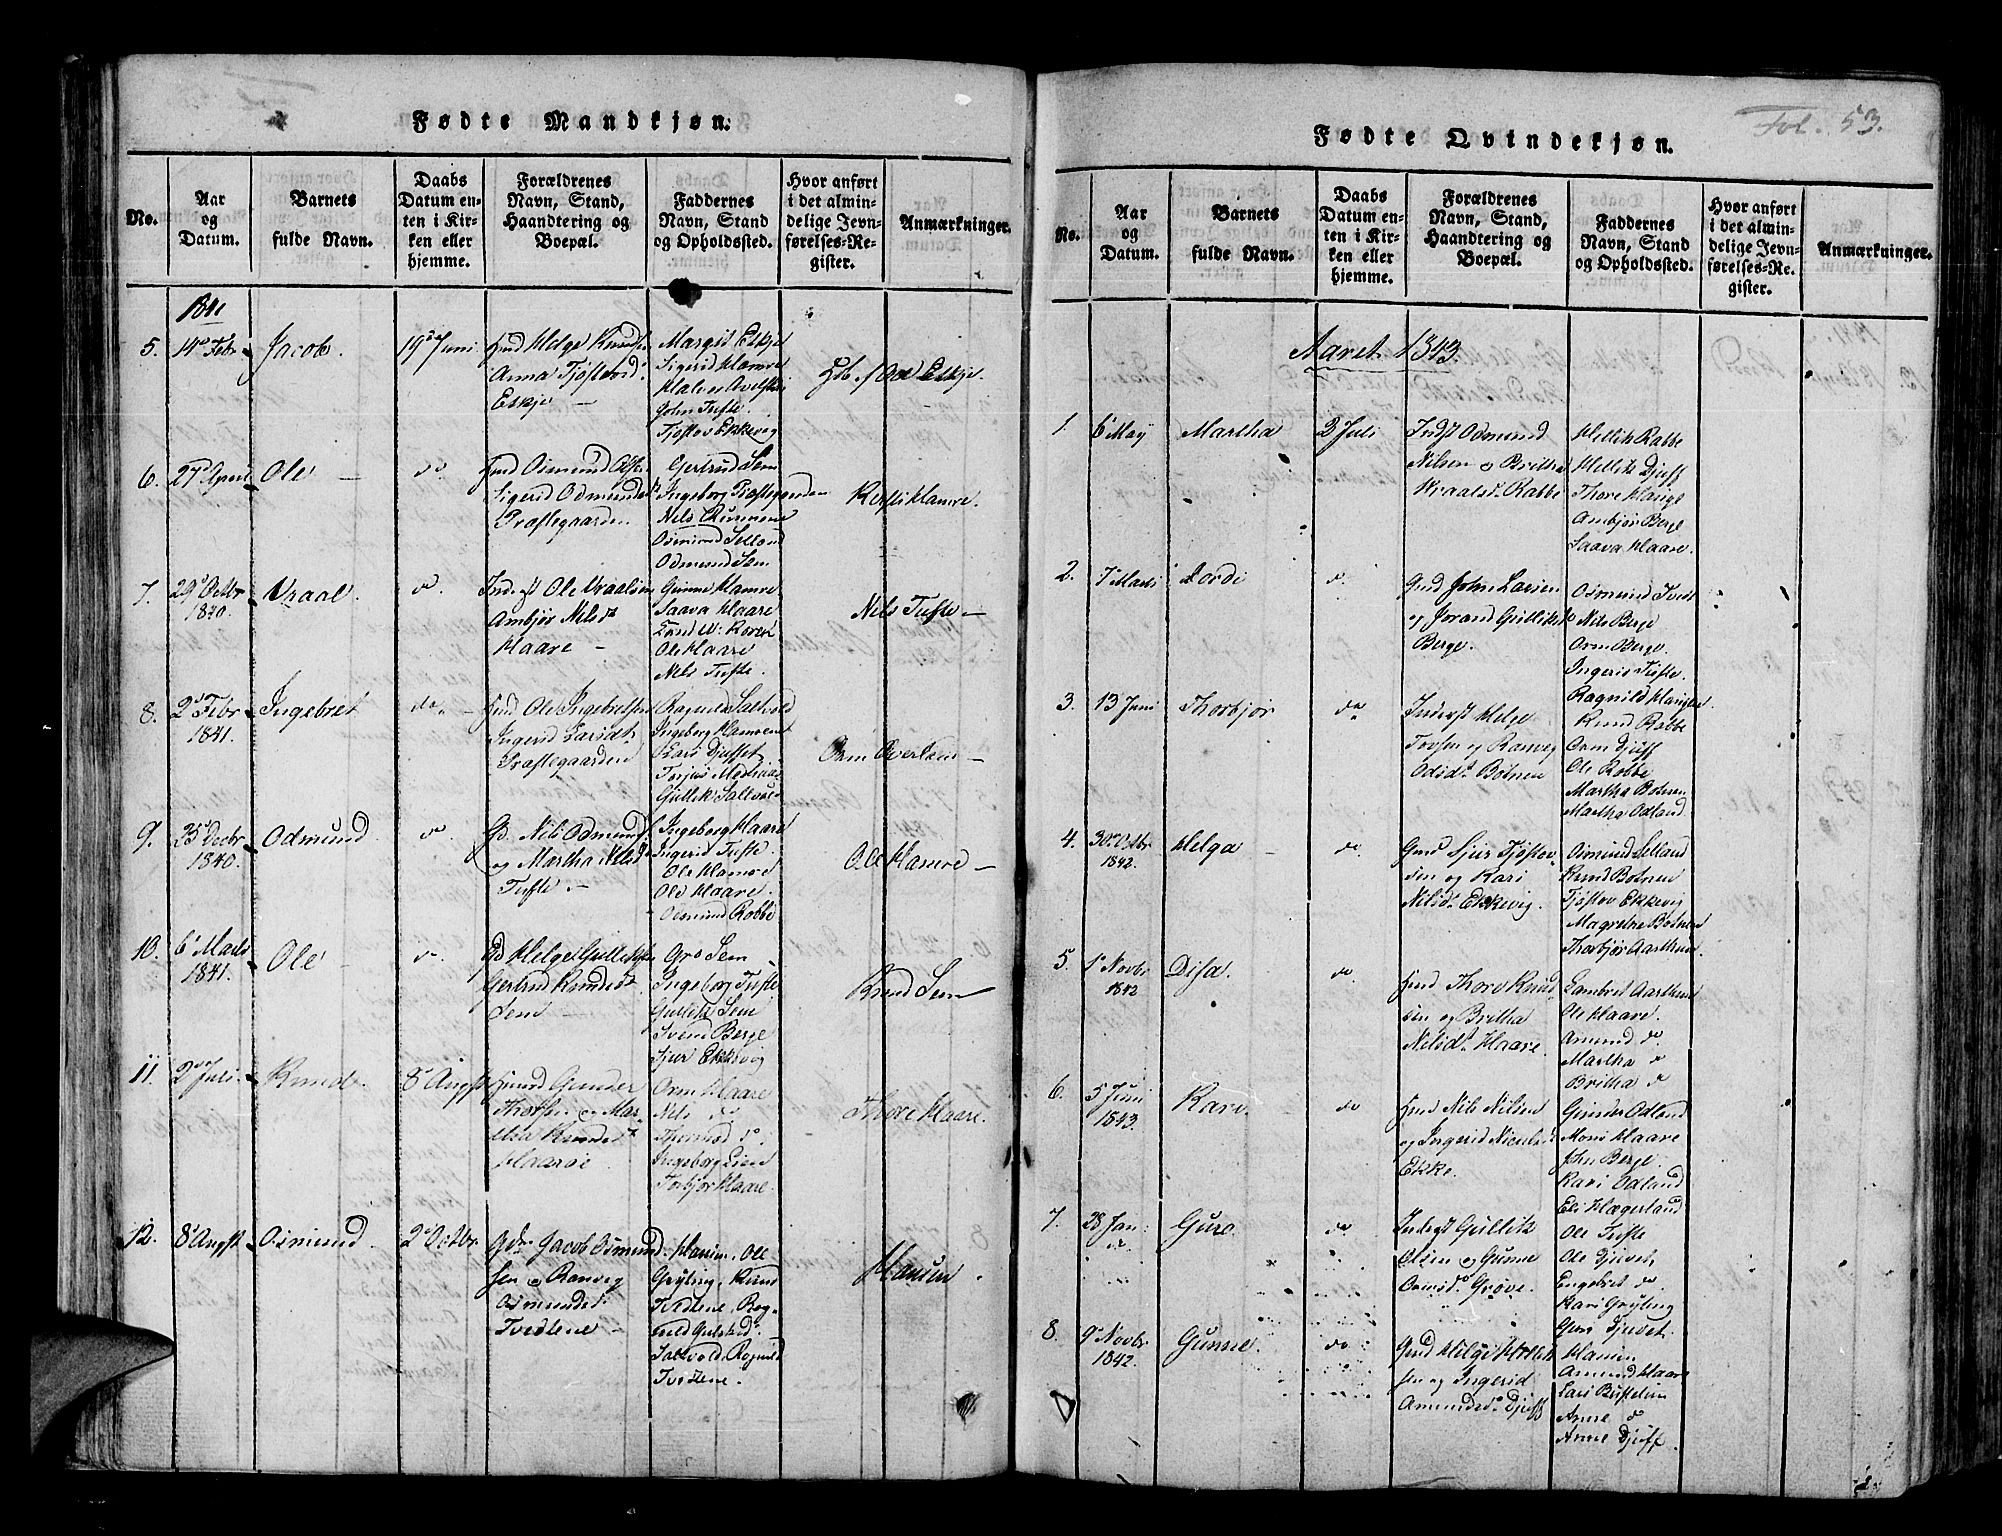 Fødte Mandkjøn.
No.
Aar og Datum.
Barnets fulde Navn.
Daabs Datum enten i Kirken eller hjemme.
Forældrenes Navn, Stand, Haandtering og Boepæl.
Faddernes Navn, Stand og Opholdssted.
Hvor anført i det almindelige Jevnførelses-Register.
Anmærkninger.
1841
5. 14d Febr. Jacob. 19d Juni
Helge Knuds
Anna Tjøstovsd.
Eskje
Margit Eskje
Sigerid Hamre
Halvor
John Tufte.
Tjøstov Ekkevig
Eskje.
6. 27d April Ole do
Osmund Ols
Sigerid Odmundsd
Præstegaarden
Gertrud Sem
Ingeborg Præstegaarden
Nils
Osmund Selland
Odmund Sem
Hamre.
7. 29d Octbr 1840. Vraal. do.
Inderst Ole Vraalsen
Ambjør Nilsdt
Haare
Gunne Hamre
Saava Haare
Ole Haare
Nils Tufte.
Nils Tufte
8. 2d Febr 1841. Ingebret do.
Ole Ingebretsen
Ingerid Larsdt
Præstegaarden
Ragnild Saltvold
Ingeborg Hamre
Kari Djuffet
Torjus
Gullik Saltvold
Orm Overland
9. 25d Decbr 1840. Odmund do.
Gd Nils Odmunds
og Martha Nilsd
Tufte.
Ingeborg Haare
Ingerid Tufte.
Ole Hamre
Ole Haare.
Osmund Rabbe
Ole Hamre
10. 6d Marts 1841. Ole do.
Gd Helge Gulliks
Gertrud Knudsdt
Sem
Gro Sem
Ingeborg Tufte
Gullik Sem
Svend Berge
Sjur Ekkevig
Knud Sem
11. 2d Juli. Knud. 8d Augst
Gunder
Thorsen og Mar
tha Knudsdt
Haarøe.
Orm Haare
Nils do
Thormod do.
Ingeborg Lien
Torbjør Haare.
Thore Haare.
12. 8d Augst Osmund. 2d Octbr
Gdm Jacob Osmund
sen og Ranveg
Osmundsd.
Tvedtene
Manin. Ole
Gryting, Knud
Tvedtene, Rag
nild
Saltvold, Ragnild
Tvedtene.
Manin
Fødte Qvindekjøn.
Fol. 53.
No.
Aar og Datum.
Barnets fulde Navn.
Daabs Datum enten i Kirken eller hjemme.
Forældrenes Navn, Stand, Haandtering og Boepæl.
Faddernes Navn, Stand og Opholdssted.
Hvor anført i det almindelige Jevnførelses-Register.
Anmærkninger.
Aaret 1843.
1. 6d May Martha 2 Juli
Indst Odmund
Nilsen og Britha
Vraalsd. Rabbe
Hellik Rabbe
Hellik Djuff
Thore
Ambjør Berge
Saava Haare.
2. 7d Marts Lordi do.
Gmd John Larsen
og Jorand Gulliksd
Berge.
Osmund Tvedt
Nils Berge
Orm Berge.
Ingerid Tufte.
3. 13 Juni Thorbjør do
Inderst Helge
Torsen og Ranveg
Odsdt. Botnen
Ragnild
Knud Rabbe
Orm Djuff
Ole Rabbe
Martha Botnen
Martha Odland
4. 30te Octbr 1842. Helga do
Gmd Sjur Tjøstov
sen og Kari
Nilsdt. Ekkevig.
Osmund Selland
Knud Botnen
Tjøstov Ekkevig
Magrethe Botnen
Thorbjør Aarthun
5. 1d Novbr 1842 Disa. do
Thore Knud
sen og Britha
Nilsdt. Haare.
Lambret Aarthun
Ole Haare.
Amund do.
Martha do
Britha do
6. 5 Juni 1843. Kari do
Nils Nilsen
og Ingerid
Ekke.
Gunder Odland
Mons Haare
John Berge
Kari Odland
Eli Hægerland
7. 28 Jan: do. Guro do
Inderst Gullik
Olsen og Gunne
Ormsdt. Grøve.
Ole Tufte
Ole Djuvet,
Engebret do
Kari Gryting
Guri Djuvet.
8. 9d Novbr 1842. Gunne. do.
Gmd Helge Hellik
sen og Ingerid
Amundsd. Djuff
Manin
Amund Haare
Lars
Anne do
Anne Djuff